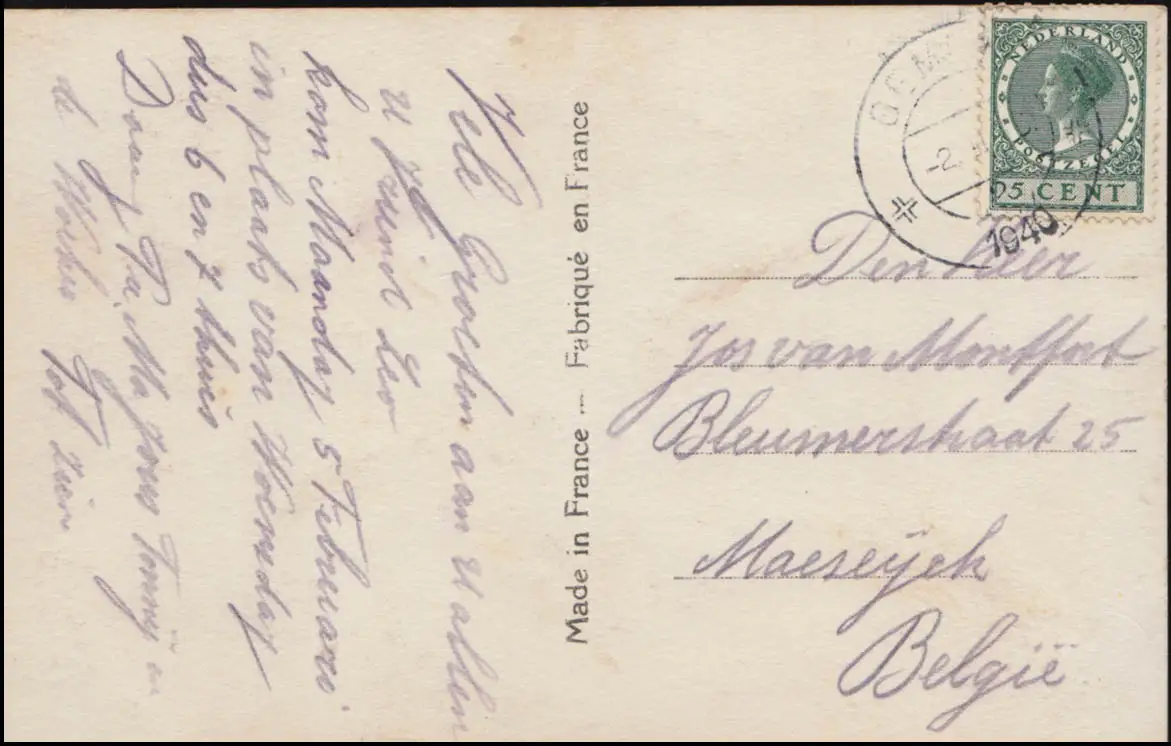 Vele Groeten aan u allen
u vriend Leo
kom Maandag 5 Februari
in plaats van Woensdag
dus 6 en 7 thuis
Daag Pa, Ma Jous Tonny en
Tot zien
Made in France --- Fabriqué en France
NEDERLAND
POSTZEGEL
25 CENT
1940
Den Heer
Jos van Montfort
Bleumerstraat 25
Maeseyck
België